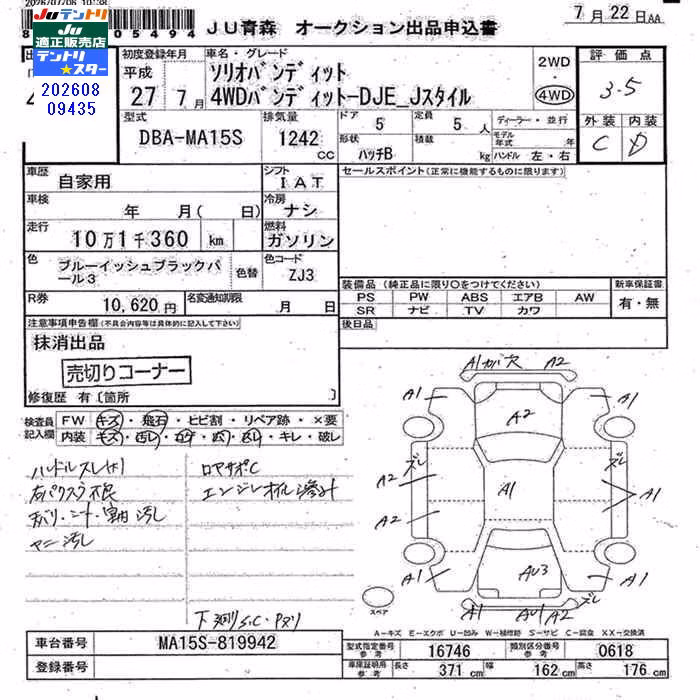 2026/07/06 10:38
JU テントリ
JU 適正販売店
テントリ
★スター
202608
09435
05494
JU青森 オークション出品申込書
7月22日AA
初度登録年月
平成
27 7月
車名・グレード
ソリオバンディット
4WDバンディットーDJE_Jスタイル
2WD
・
4WD
評価点
3.5
外装 内装
C D
型式
DBA-MA15S
排気量
1242
cc
ドア
5
定員
5人
形状
ハッチB
積載
kg
ディーラー・並行
モデル
年式 年
ハンドル 左・右
車歴
自家用
シフト
IAT
セールスポイント(正常に機能するものに限ります)
車検
年 月( 日)
冷房
ナシ
走行
10万1千360 km
燃料
ガソリン
色
ブルーイッシュブラックパ
ール3
色替
色コード
ZJ3
R券
10,620円
名変通知期限
月 日
装備品(純正品に限り○をつけてください)
PS PW ABS エアB AW
SR ナビ TV カワ
新車保証書
有・無
後日品
注意事項申告欄(不具合内容等は具体的に記入して下さい)
抹消出品
売切りコーナー
修復歴 有〔箇所 〕
検査員
記入欄
FW キズ・飛石・ヒビ割・リペア跡・×要
内装 キズ・汚レ・コゲ・穴・スレ・キレ・破レ
ハンドルスレ大
天バリ・シート・室内汚し
ロアサポC
エンジンオイル滲み
下廻りS.C・Pヌリ
A1 A2
A1 A1
A2
ズレ ズレ
A2 A1 A1
A2
A1 AU3 A1
ズレ
A1 AU1 A2
スペア
A-キズ E-エクボ U-凹み W-補修跡 S-サビ C-腐食 XX-交換済
車台番号
MA15S-819942
登録番号
型式指定番号
参考
16746
類別区分番号
参考
0618
車庫証明用
参考
長さ 371 cm
幅 162 cm
高さ 176 cm